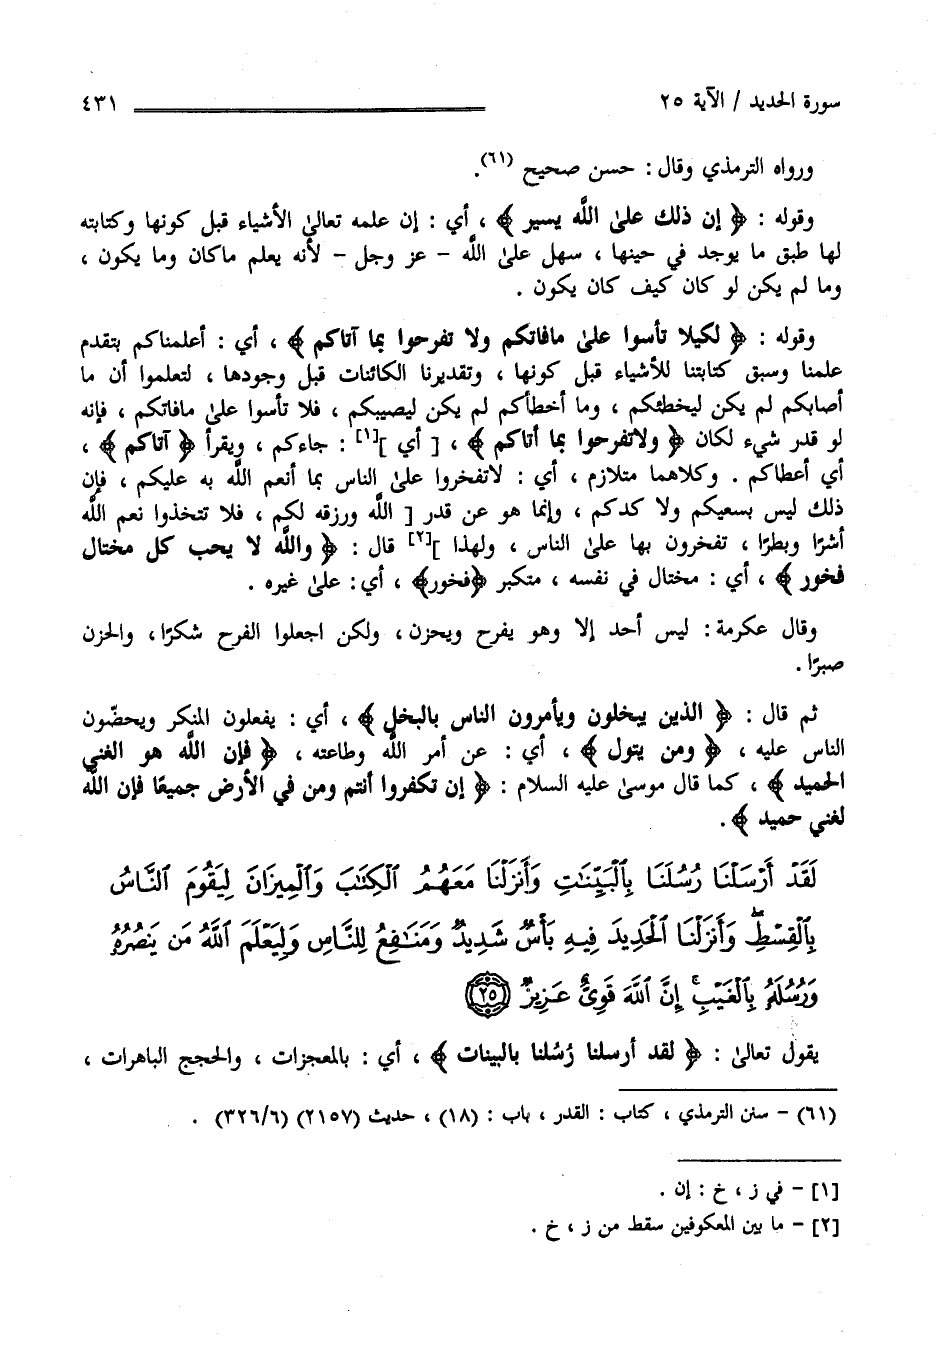 سورة الحديد / الآية ٢٥ ٤٣١
ورواه الترمذي وقال : حسن صحيح (٦١).
وقوله : ﴿ إن ذلك علىٰ اللَّه يسير ﴾ ، أي : إن علمه تعالىٰ الأشياء قبل كونها وكتابته
لها طبق ما يوجد في حينها ، سهل علىٰ اللَّه – عز وجل – لأنه يعلم ماكان وما يكون ،
وما لم يكن لو كان كيف كان يكون .
وقوله : ﴿ لكيلا تأسوا علىٰ مافاتكم ولا تفرحوا بما آتاكم ﴾ ، أي : أعلمناكم بتقدم
علمنا وسبق كتابتنا للأشياء قبل كونها ، وتقديرنا الكائنات قبل وجودها ، لتعلموا أن ما
أصابكم لم يكن ليخطئكم ، وما أخطأكم لم يكن ليصيبكم ، فلا تأسوا علىٰ مافاتكم ، فإنه
لو قدر شيء لكان ﴿ ولاتفرحوا بما أتاكم ﴾ ، [ أي ][١] : جاءكم ، ويقرأ ﴿ آتاكم ﴾ ،
أي أعطاكم . وكلاهما متلازم ، أي : لاتفخروا علىٰ الناس بما أنعم اللَّه به عليكم ، فإن
ذلك ليس بسعيكم ولا كدكم ، وإنما هو عن قدر [ اللَّه ورزقه لكم ، فلا تتخذوا نعم اللَّه
أشرًا وبطرًا ، تفخرون بها علىٰ الناس ، ولهذا ][٢] قال : ﴿ واللَّه لا يحب كل مختال
فخور ﴾ ، أي : مختال في نفسه ، متكبر ﴿فخور﴾ ، أي: علىٰ غيره .
وقال عكرمة: ليس أحد إلا وهو يفرح ويحزن، ولكن اجعلوا الفرح شكرًا، والحزن
صبرًا .
ثم قال : ﴿ الذين يبخلون ويأمرون الناس بالبخل ﴾ ، أي : يفعلون المنكر ويحضّون
الناس عليه ، ﴿ ومن يتول ﴾ ، أي : عن أمر اللَّه وطاعته ، ﴿ فإن اللَّه هو الغني
الحميد ﴾ ، كما قال موسىٰ عليه السلام : ﴿ إن تكفروا أنتم ومن في الأرض جميعًا فإن اللَّه
لغني حميد ﴾ .
لَقَدۡ أَرۡسَلۡنَا رُسُلَنَا بِٱلۡبَيِّنَٰتِ وَأَنزَلۡنَا مَعَهُمُ ٱلۡكِتَٰبَ وَٱلۡمِيزَانَ لِيَقُومَ ٱلنَّاسُ
بِٱلۡقِسۡطِۖ وَأَنزَلۡنَا ٱلۡحَدِيدَ فِيهِ بَأۡسٌ شَدِيدٌ وَمَنَٰفِعُ لِلنَّاسِ وَلِيَعۡلَمَ ٱللَّهُ مَن يَنصُرُهُۥ
وَرُسُلَهُۥ بِٱلۡغَيۡبِۚ إِنَّ ٱللَّهَ قَوِيٌّ عَزِيزٌ ٢٥
يقول تعالىٰ : ﴿ لقد أرسلنا رُسُلنا بالبينات ﴾ ، أي : بالمعجزات ، والحجج الباهرات ،
(٦١) – سنن الترمذي ، كتاب : القدر ، باب : (١٨) ، حديث (٢١٥٧) (٣٢٦/٦) .
[١] – في ز ، خ : إن .
[٢] – ما بين المعكوفين سقط من ز ، خ .